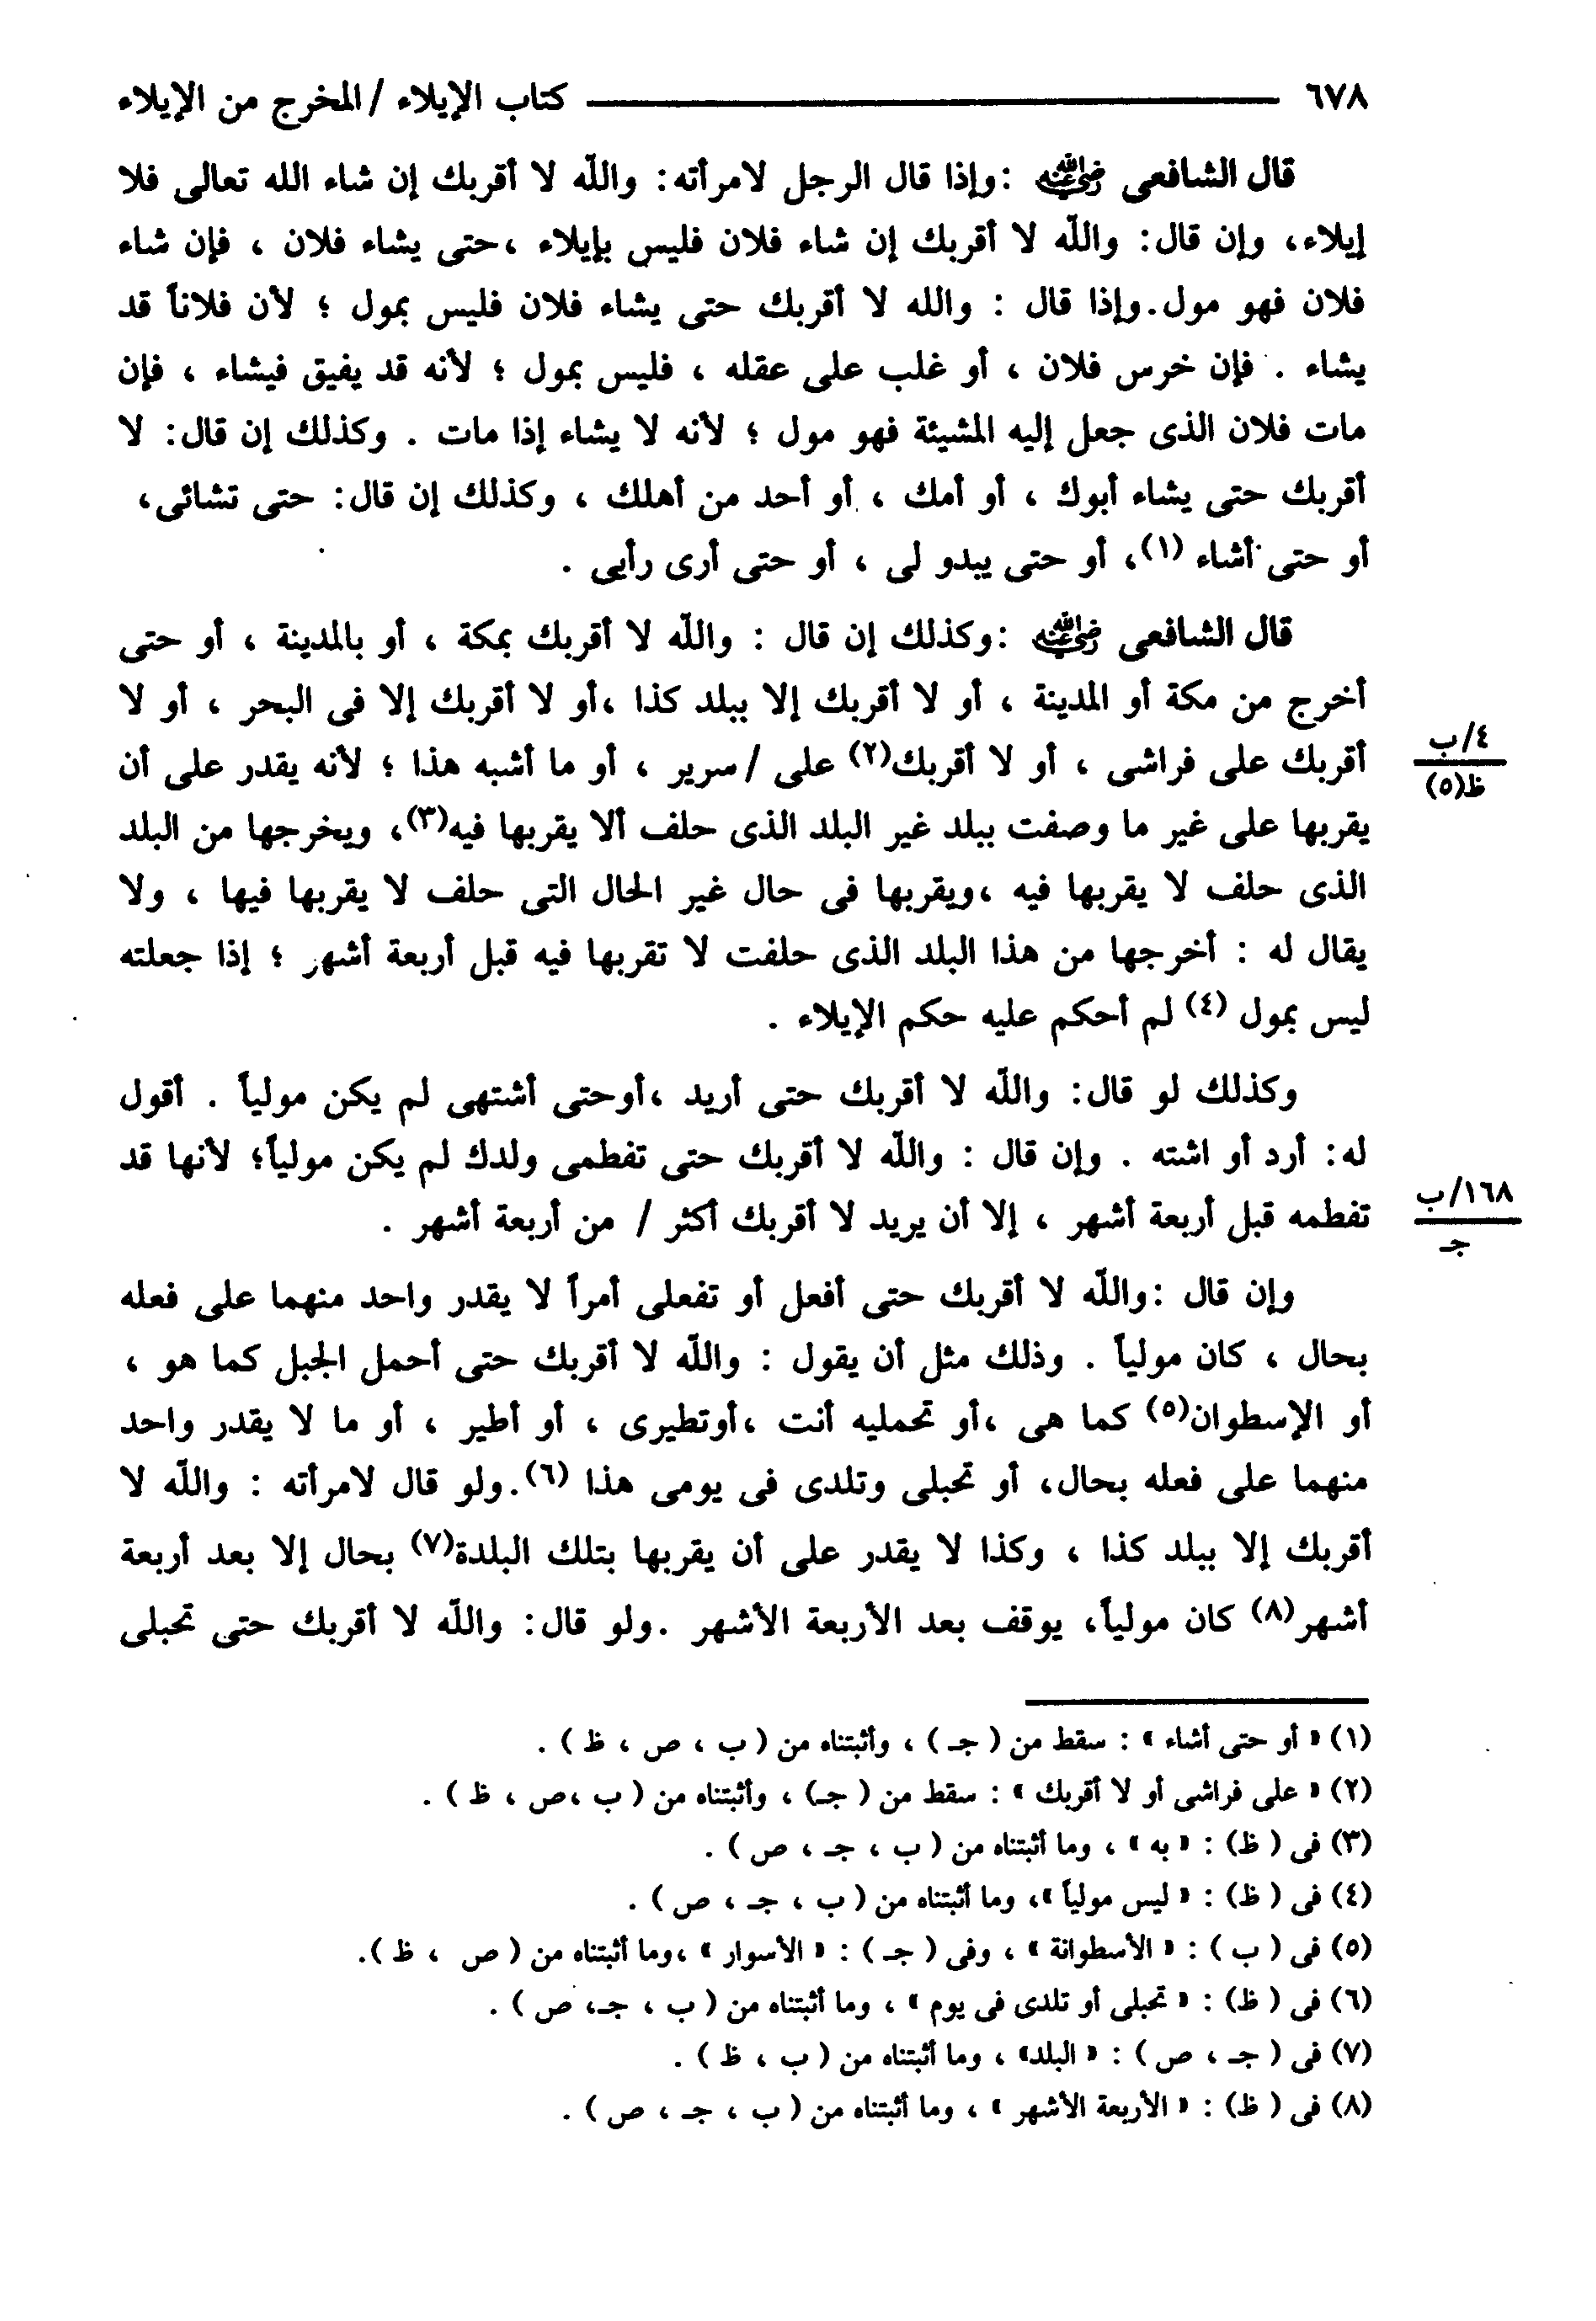 ٦٧٨ ــــــــــــــــــــ كتاب الإيلاء / المخرج من الإيلاء
قال الشافعى رضي الله عنه : وإذا قال الرجل لامرأته: واللّه لا أقربك إن شاء الله تعالى فلا
إيلاء، وإن قال: واللّه لا أقربك إن شاء فلان فليس بإيلاء ،حتى يشاء فلان ، فإن شاء
فلان فهو مول.وإذا قال : والله لا أقربك حتى يشاء فلان فليس بمول ؛ لأن فلاناً قد
يشاء . فإن خرس فلان ، أو غلب على عقله ، فليس بمول ؛ لأنه قد يفيق فيشاء ، فإن
مات فلان الذى جعل إليه المشيئة فهو مول ؛ لأنه لا يشاء إذا مات . وكذلك إن قال: لا
أقربك حتى يشاء أبوك ، أو أمك ، أو أحد من أهلك ، وكذلك إن قال: حتى تشائى،
أو حتى أشاء (١)، أو حتى يبدو لى ، أو حتى أرى رأيى .
قال الشافعى رضي الله عنه :وكذلك إن قال : واللّه لا أقربك بمكة ، أو بالمدينة ، أو حتى
أخرج من مكة أو المدينة ، أو لا أقربك إلا ببلد كذا ،أو لا أقربك إلا فى البحر ، أو لا
أقربك على فراشى ، أو لا أقربك(٢) على / سرير ، أو ما أشبه هذا ؛ لأنه يقدر على أن
٤/ب
ظ(٥)
يقربها على غير ما وصفت ببلد غير البلد الذى حلف ألا يقربها فيه(٣)، ويخرجها من البلد
الذى حلف لا يقربها فيه ،ويقربها فى حال غير الحال التى حلف لا يقربها فيها ، ولا
يقال له : أخرجها من هذا البلد الذى حلفت لا تقربها فيه قبل أربعة أشهر ؛ إذا جعلته
ليس بمول (٤) لم أحكم عليه حكم الإيلاء .
وكذلك لو قال: واللّه لا أقربك حتى أريد ،أوحتى أشتهى لم يكن مولياً . أقول
له: أرد أو اشته . وإن قال : واللّه لا أقربك حتى تفطمى ولدك لم يكن مولياً؛ لأنها قد
تفطمه قبل أربعة أشهر ، إلا أن يريد لا أقربك أكثر / من أربعة أشهر .
١٦٨/ب
جـ
وإن قال :واللّه لا أقربك حتى أفعل أو تفعلى أمراً لا يقدر واحد منهما على فعله
بحال ، كان مولياً . وذلك مثل أن يقول : واللّه لا أقربك حتى أحمل الجبل كما هو ،
أو الإسطوان(٥) كما هى ،أو تحمليه أنت ،أوتطيرى ، أو أطير ، أو ما لا يقدر واحد
منهما على فعله بحال، أو تحبلى وتلدى فى يومى هذا (٦).ولو قال لامرأته : واللّه لا
أقربك إلا ببلد كذا ، وكذا لا يقدر على أن يقربها بتلك البلدة(٧) بحال إلا بعد أربعة
أشهر(٨) كان مولياً، يوقف بعد الأربعة الأشهر .ولو قال: واللّه لا أقربك حتى تحبلى
(١) « أو حتى أشاء » : سقط من ( جـ ) ، وأثبتناه من ( ب ، ص ، ظ ) .
(٢) « على فراشى أو لا أقربك » : سقط من ( جـ) ، وأثبتناه من ( ب ،ص ، ظ ) .
(٣) فى ( ظ) : « به » ، وما أثبتناه من ( ب ، جـ ، ص ) .
(٤) فى ( ظ) : « ليس مولياً »، وما أثبتناه من ( ب ، جـ ، ص ) .
(٥) فى ( ب ) : « الأسطوانة » ، وفى ( جـ ) : « الأسوار » ،وما أثبتناه من ( ص ، ظ ).
(٦) فى ( ظ) : « تحبلى أو تلدى فى يوم » ، وما أثبتناه من ( ب ، جـ، ص ) .
(٧) فى ( جـ ، ص ) : « البلد» ، وما أثبتناه من ( ب ، ظ ) .
(٨) فى ( ظ) : « الأربعة الأشهر » ، وما أثبتناه من ( ب ، جـ ، ص ) .